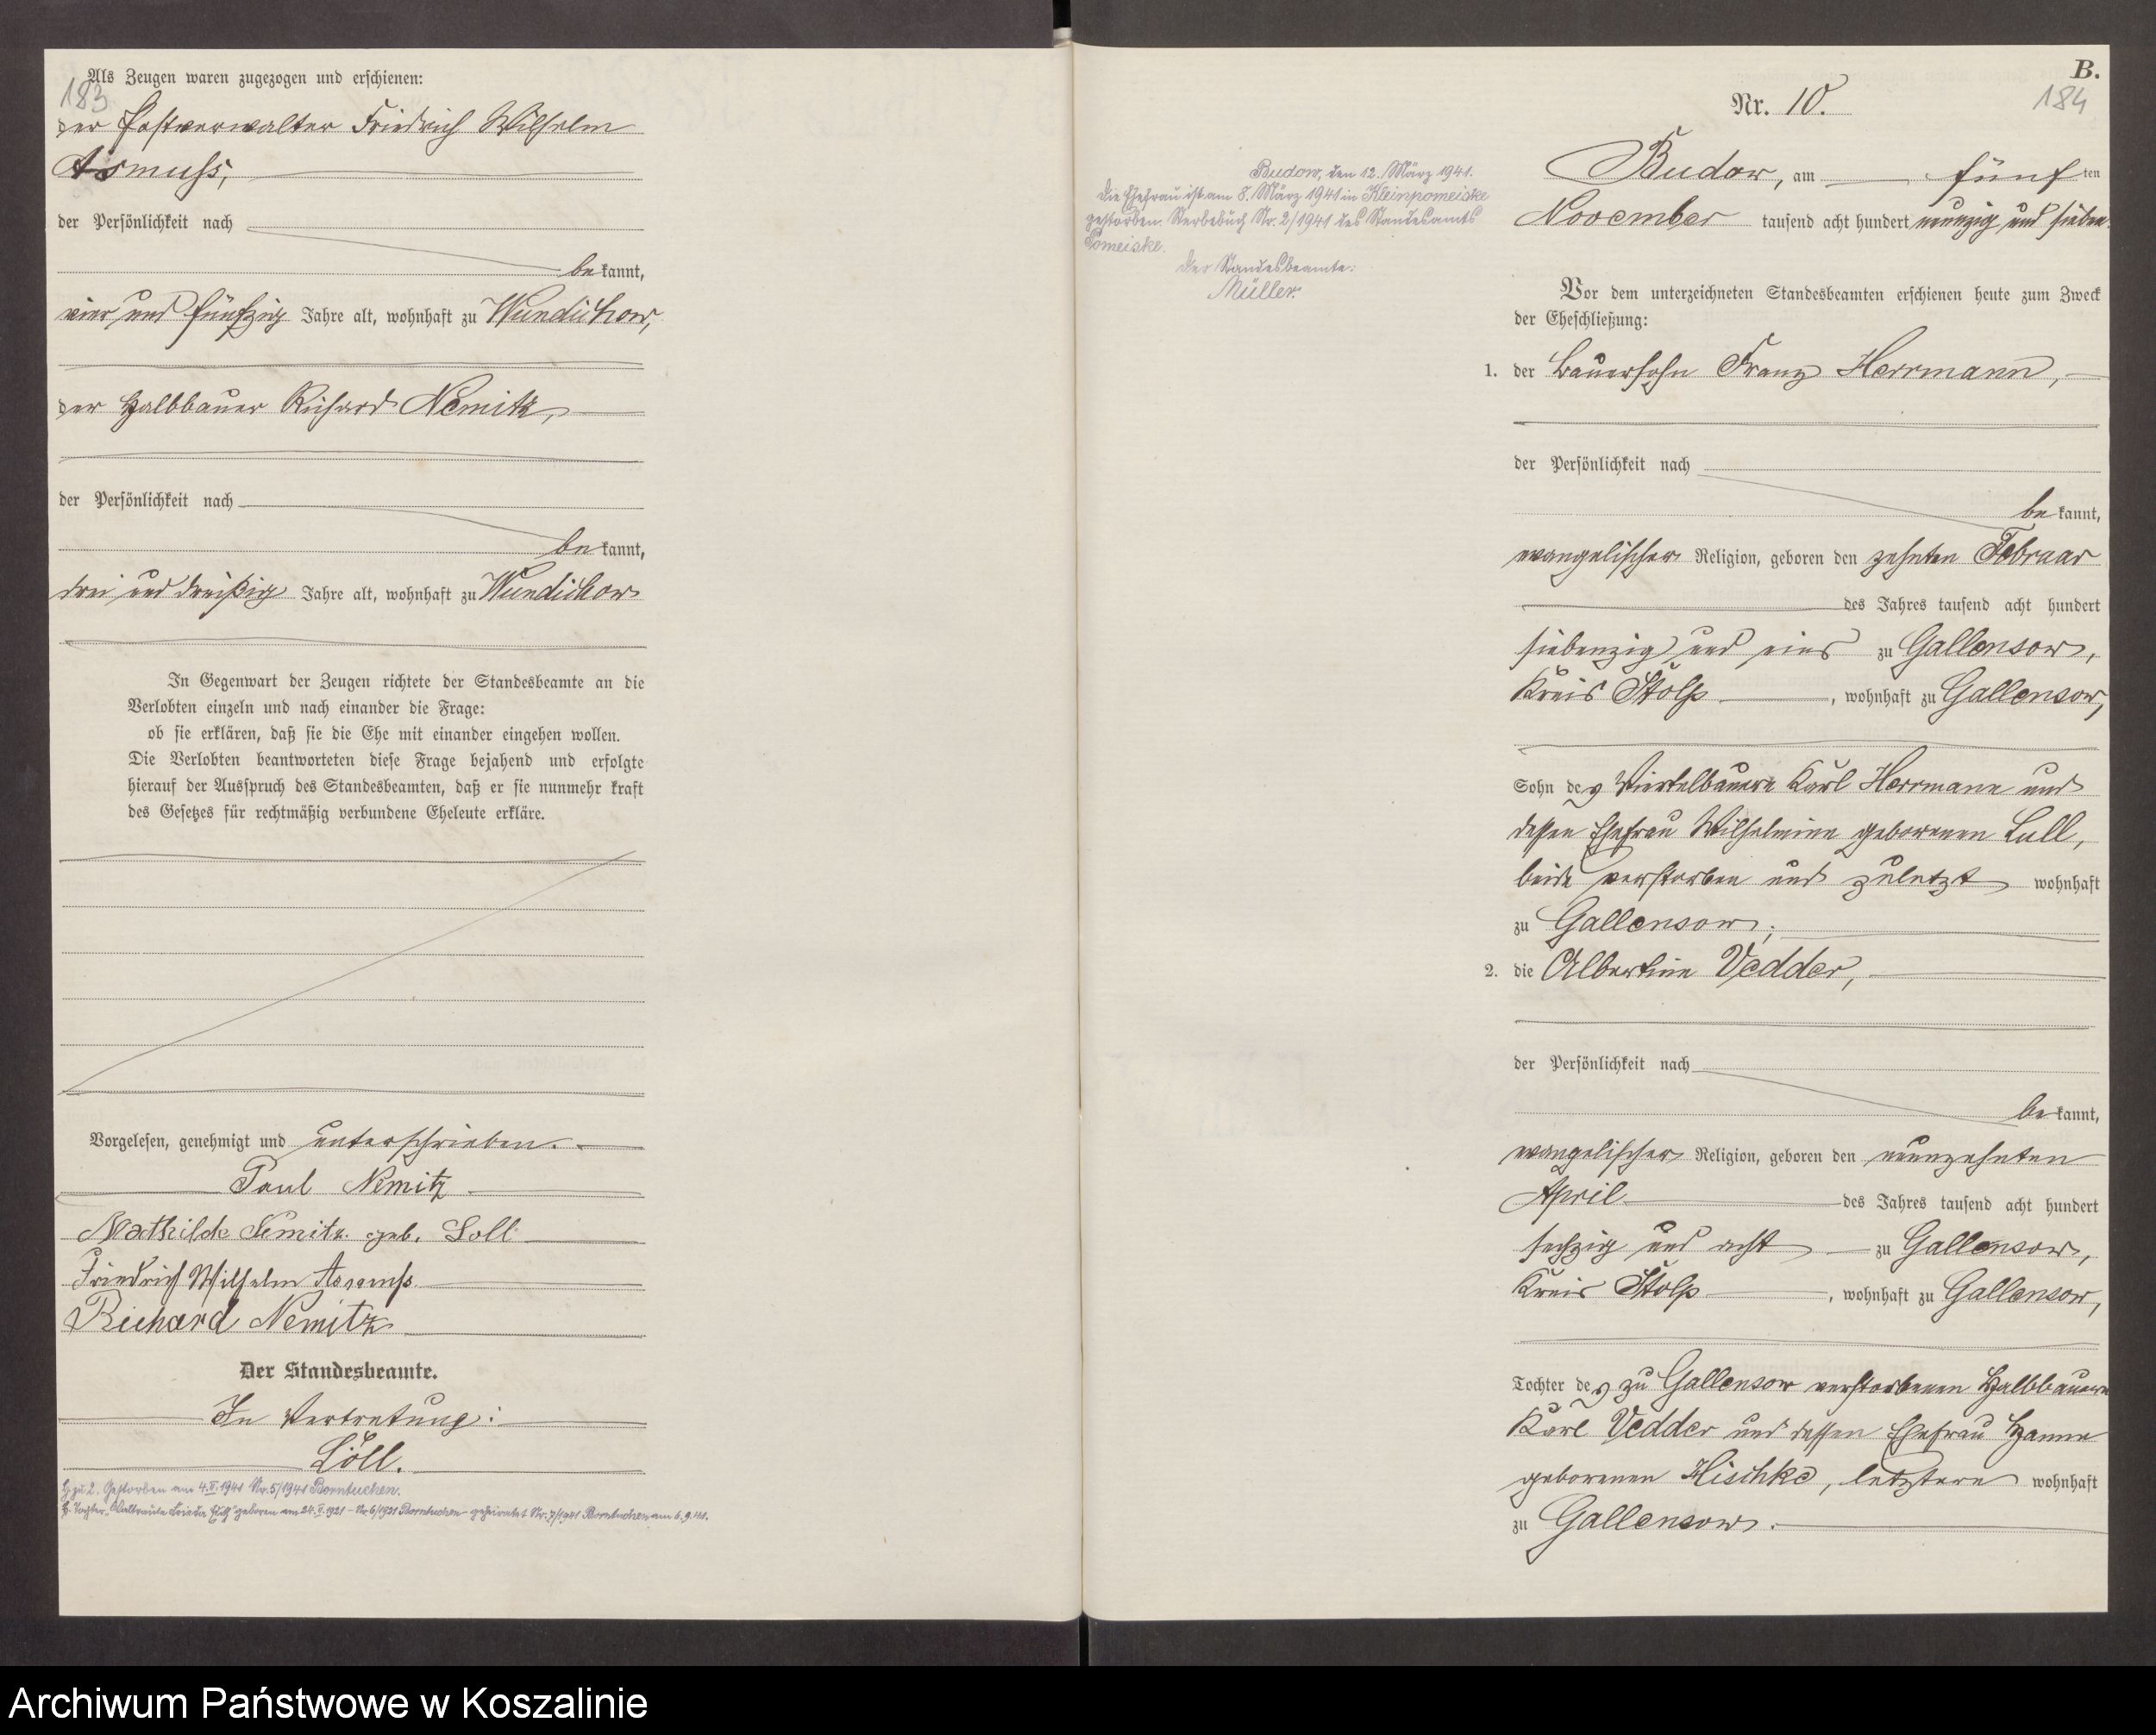 Als Zeugen waren zugezogen und erschienen:
183
der Postverwalter Friedrich Wilhelm
Asmuss,
der Persönlichkeit nach
be kannt,
vier und fünfzig Jahre alt, wohnhaft zu Wundichow,
der Halbbauer Richard Nemitz,
der Persönlichkeit nach
be kannt,
drei und dreißig Jahre alt, wohnhaft zu Wundichow
In Gegenwart der Zeugen richtete der Standesbeamte an die
Verlobten einzeln und nach einander die Frage:
ob sie erklären, daß sie die Ehe mit einander eingehen wollen.
Die Verlobten beantworteten diese Frage bejahend und erfolgte
hierauf der Ausspruch des Standesbeamten, daß er sie nunmehr kraft
des Gesetzes für rechtmäßig verbundene Eheleute erkläre.
Vorgelesen, genehmigt und unterschrieben.
Paul Nemitz
Mathilde Nemitz geb. Loll
Friedrich Wilhelm Asmuss
Richard Nemitz
Der Standesbeamte.
In Vertretung:
Löll.
H. zu 2. Gestorben am 4.II.1941 Nr. 5/1941 Borntuchen.
geboren am 24.II.1921 - Nr 6/1921 Borntuchen - geheiratet Nr. 7/1941 Borntuchen am 6.9.41.
B.
184
Nr. 10.
Budow, am fünf ten
November tausend acht hundert neunzig und sieben.
Budow, den 12. März 1941.
Die Ehefrau ist am 8. März 1941 in Kleinpomeiske
gestorben. Sterbebuch Nr. 2/1941 des Standesamts
Pomeiske.
Der Standesbeamte:
Müller.
Vor dem unterzeichneten Standesbeamten erschienen heute zum Zweck
der Eheschließung:
1. der Bauersohn Franz Herrmann,
der Persönlichkeit nach
be kannt,
evangelischer Religion, geboren den zehnten Februar
des Jahres tausend acht hundert
siebenzig und eins zu Gallensow,
Kreis Stolp, wohnhaft zu Gallensow,
Sohn des Viertelbauern Karl Herrmann und
dessen Ehefrau Wilhelmine geborenen Lull,
beide verstorben und zuletzt wohnhaft
zu Gallensow;
2. die Albertine Vedder,
der Persönlichkeit nach
be kannt,
evangelischer Religion, geboren den neunzehnten
April des Jahres tausend acht hundert
sechzig und acht zu Gallensow,
Kreis Stolp, wohnhaft zu Gallensow,
Tochter des zu Gallensow verstorbenen Halbbauern
Karl Vedder und dessen Ehefrau Hanne
geborenen Hischke, letztere wohnhaft
zu Gallensow.
Archiwum Państwowe w Koszalinie